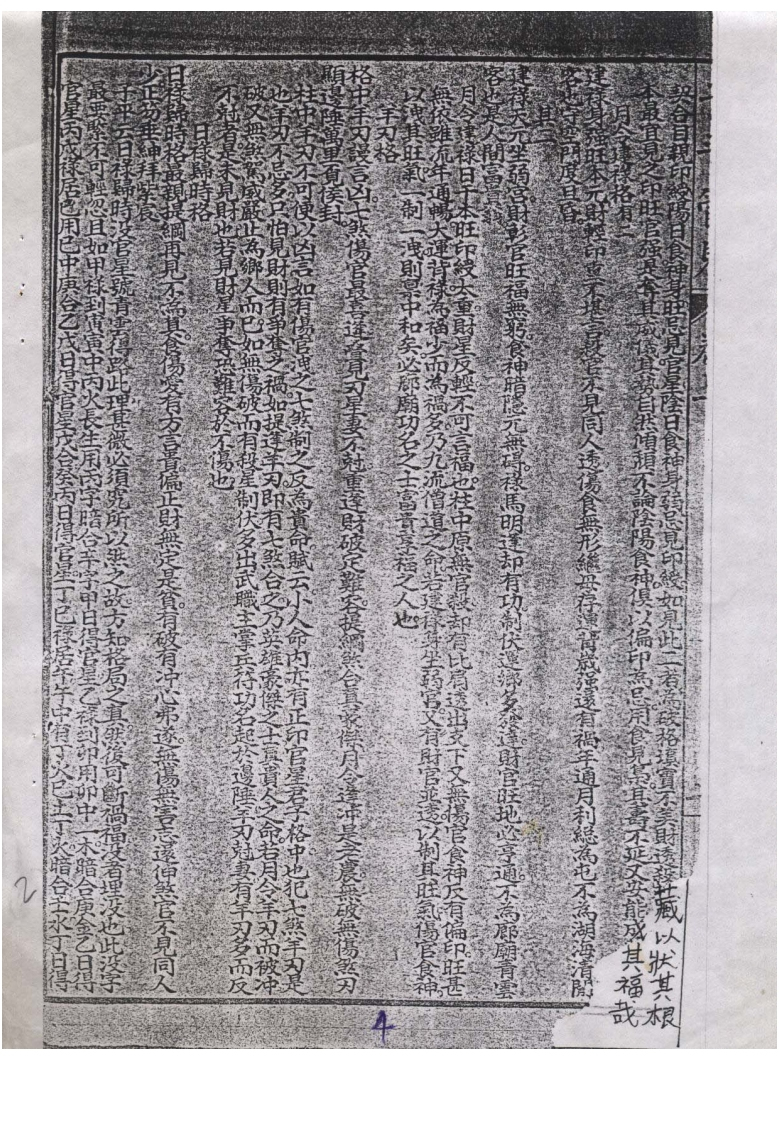 契合目親印綬陽日食神身旺忌見官星陰日食神身弱忌見印綬如見此二者為破格填實不美財透殺藏以狀其根
本最宜見之印旺官強是奪其威儀其勢自然傾頹不論陰陽食神俱以偏印為忌用食見梟其壽不延又安能成其福哉
月令建祿格有二
建祿身強旺本元財輕印重不堪言殺官不見同人透傷食無形繼母存運背歲強還有禍年通月利總為屯不為湖海清閑
客也守空門度旦昏
其二
建祿天元坐弱宮財彰官旺福無窮食神暗隱元無碍祿馬明逢却有功制伏運鄉多發達財官旺地必亨通不為廊廟青雲
客也是人間富貴翁
月令建祿日干本旺印綬太重財星反輕不可言福也柱中原無官殺却有比肩透出支下又無傷官食神反有偏印旺甚
無依雖流年通暢大運背祿為福少而為禍多乃九流僧道之命若運得身坐弱宮又有財官並透以制其旺氣傷官食神
以洩其旺氣一制一洩則禀中和矣必廊廟功名之士富貴享福之人也
羊刃格
格中羊刃謾言凶七煞傷官最喜逢疊見刃星妻不尅重逢財破定難容提綱煞合真豪傑月令逢沖是丕農無破無傷煞刃
顯邊陲萬里覓侯封
柱中羊刃不可便以凶言如有傷官洩之七煞制之反為貴命賦云小人命內亦有正印官星君子格中也犯七煞羊刃是
也羊刃不忌多只怕見財則有爭奪之禍如提逢羊刃即有七煞合之乃英雄豪傑之士真貴人之命若月令羊刃而被冲
破又無煞為威嚴止為鄉人而已如無傷破而有殺星制伏多出武職主掌兵符功名起於邊陲羊刃尅妻有羊刃多而反
不尅者是未見財也若見財星爭奪恐難容於不傷也
日祿歸時格
日祿歸時格最親提綱再見不為真食傷愛有方言貴偏正財無定是貧有破有冲心弗遂無傷無害志還伸煞官不見同人
少正笏垂紳拜紫宸
子平云日祿歸時沒官星號青雲得路此理其微必須究所以然之故方知格局之真然後可斷禍福沒者埋沒也此沒字
最要緊不可輕忽且如甲祿到寅寅中丙火長生用丙字暗合辛字甲日得官星乙祿到卯用卯中一木暗合庚金乙日得
官星丙戊祿居巳用巳中庚合乙戊日得官星戊合癸丙日得官星丁巳祿居午午中有丁火巳土丁火暗合壬水丁日得
2
4